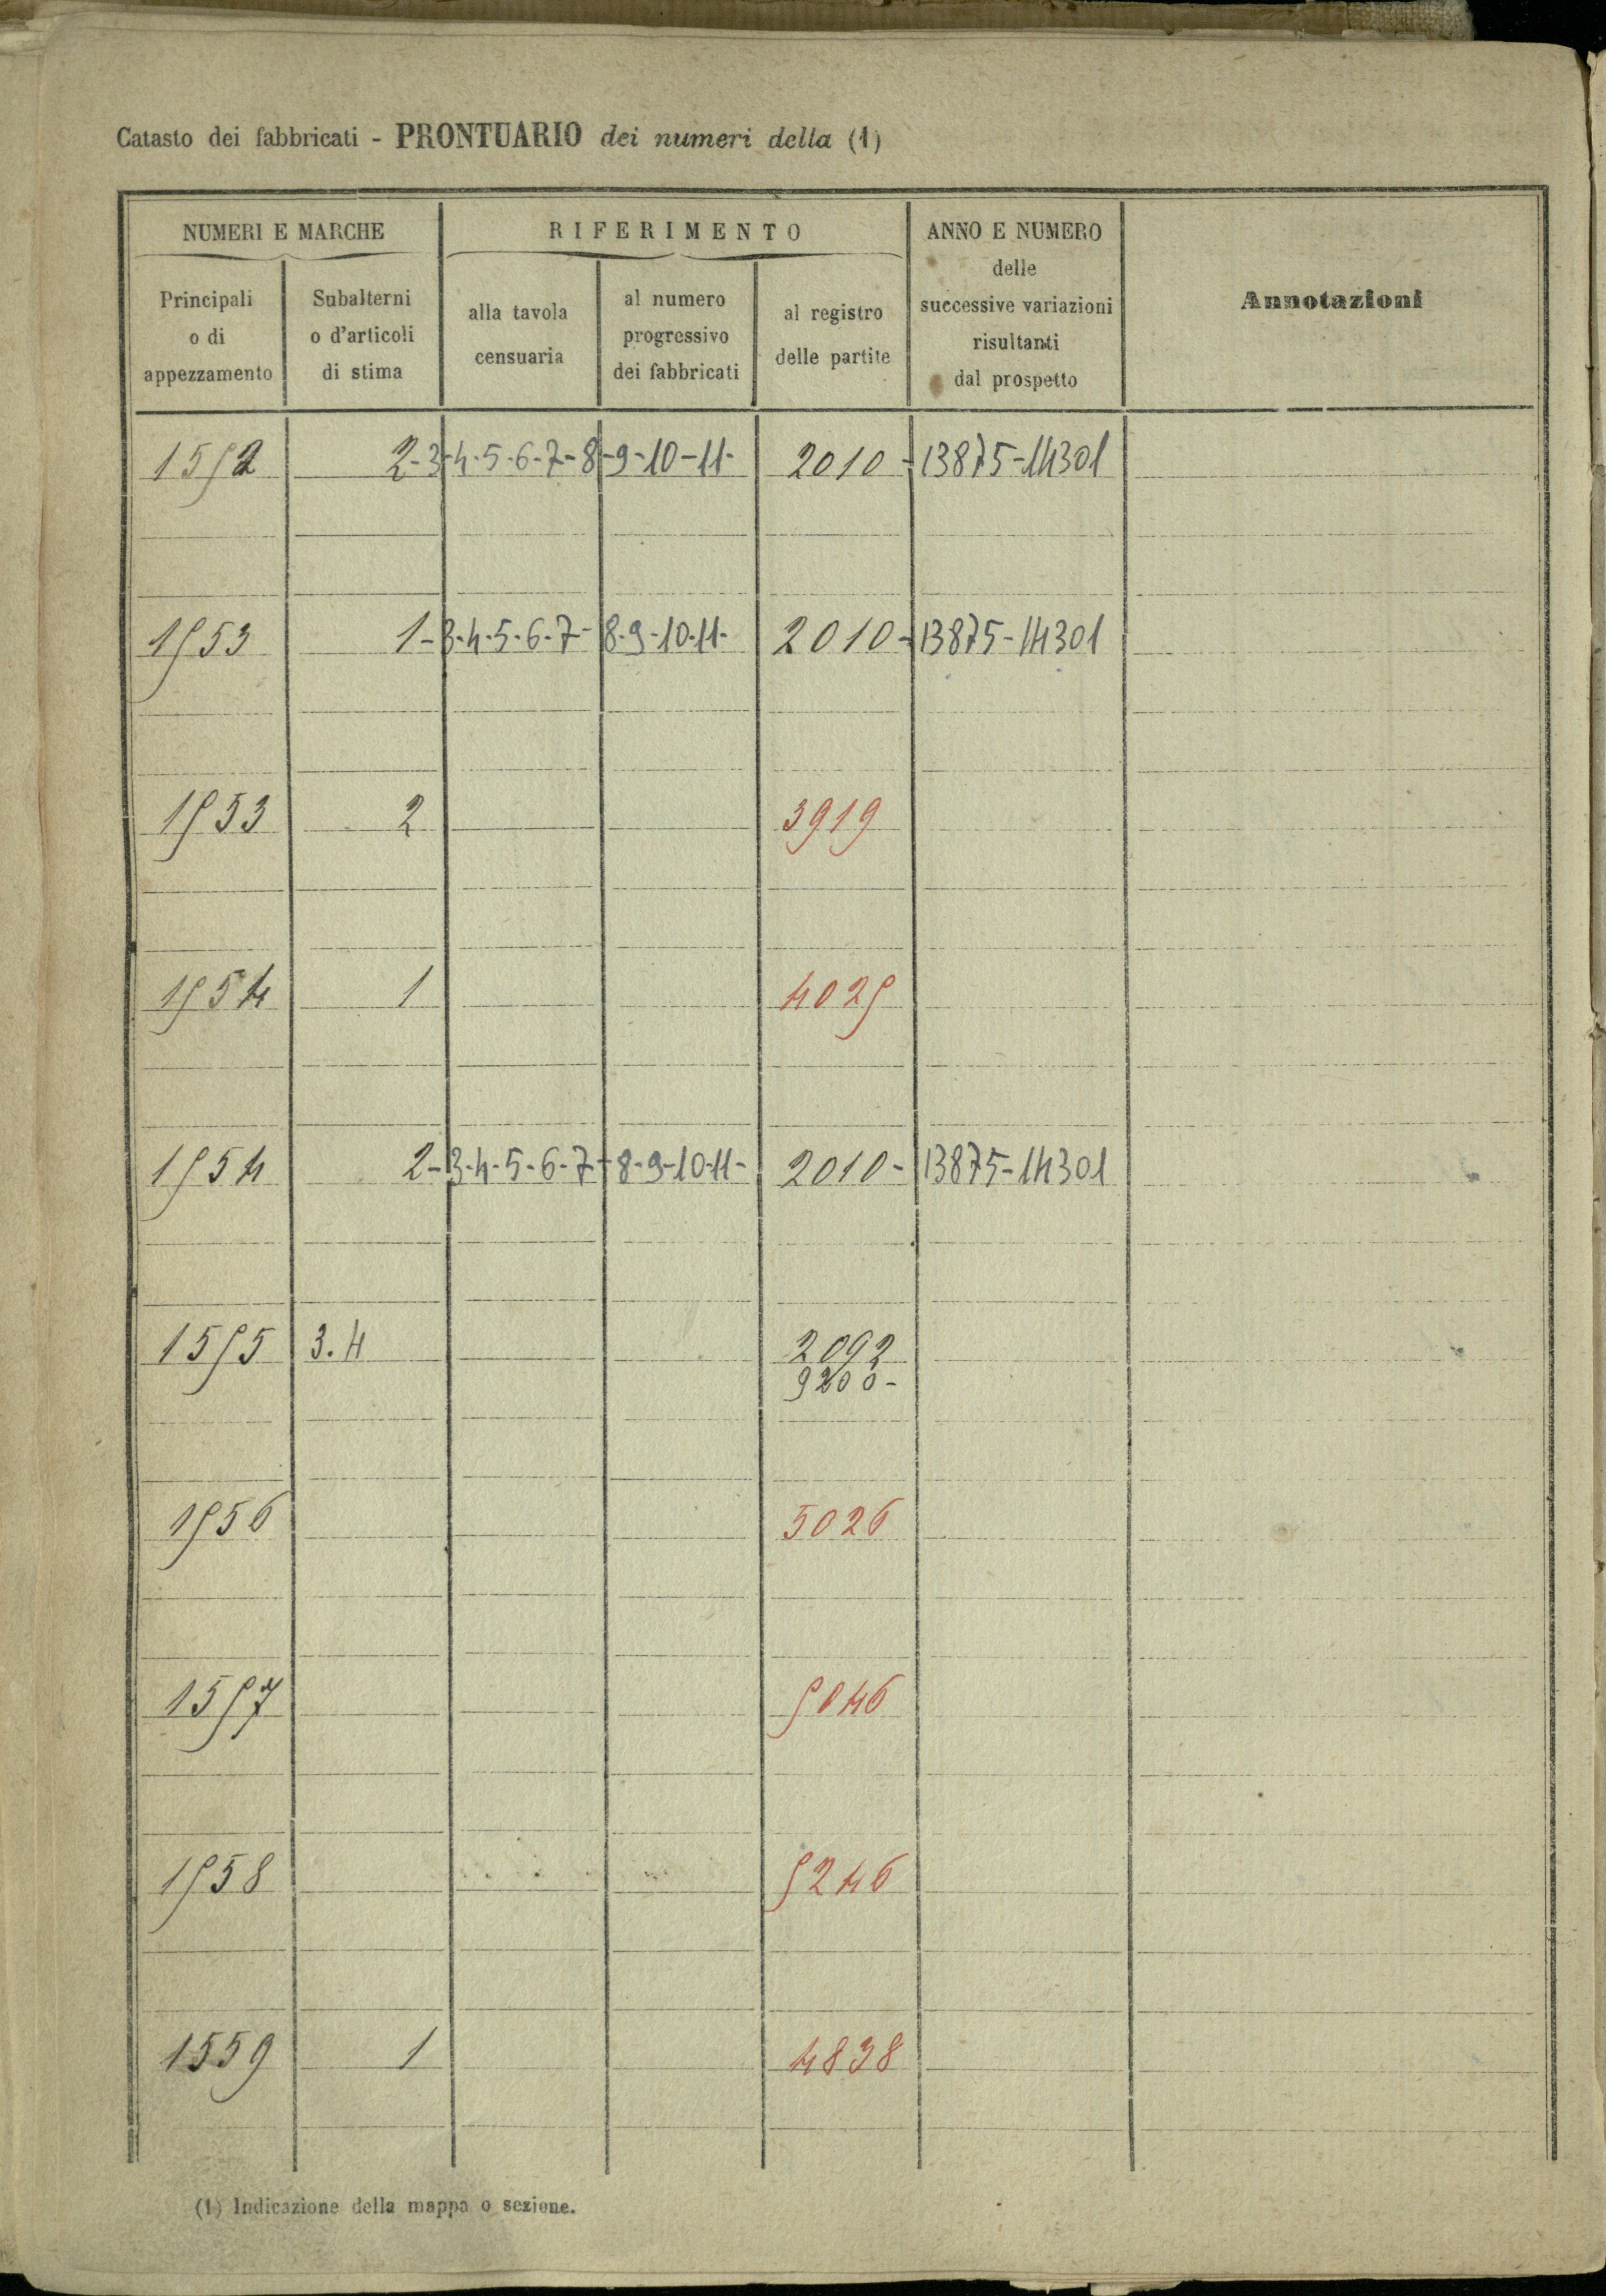 Catasto dei fabbricati - PRONTUARIO dei numeri della (1)
NUMERI E MARCHE
Principali o di appezzamento
Subalterni o d'articoli di stima
RIFERIMENTO
alla tavola censuaria
al numero progressivo dei fabbricati
al registro delle partite
ANNO E NUMERO delle successive variazioni risultanti dal prospetto
Annotazioni
1552 2-3-4-5-6-7-8-9-10-11- 2010-13875-14301
1553 1-3-4-5-6-7-8-9-10-11- 2010-13875-14301
1553 2 3919
1554 1 4025
1554 2-3-4-5-6-7-8-9-10-11- 2010-13875-14301
1555 3.4 2092
9200-
1556 5026
1557 5046
1558 5246
1559 1 4838
(1) Indicazione della mappa o sezione.